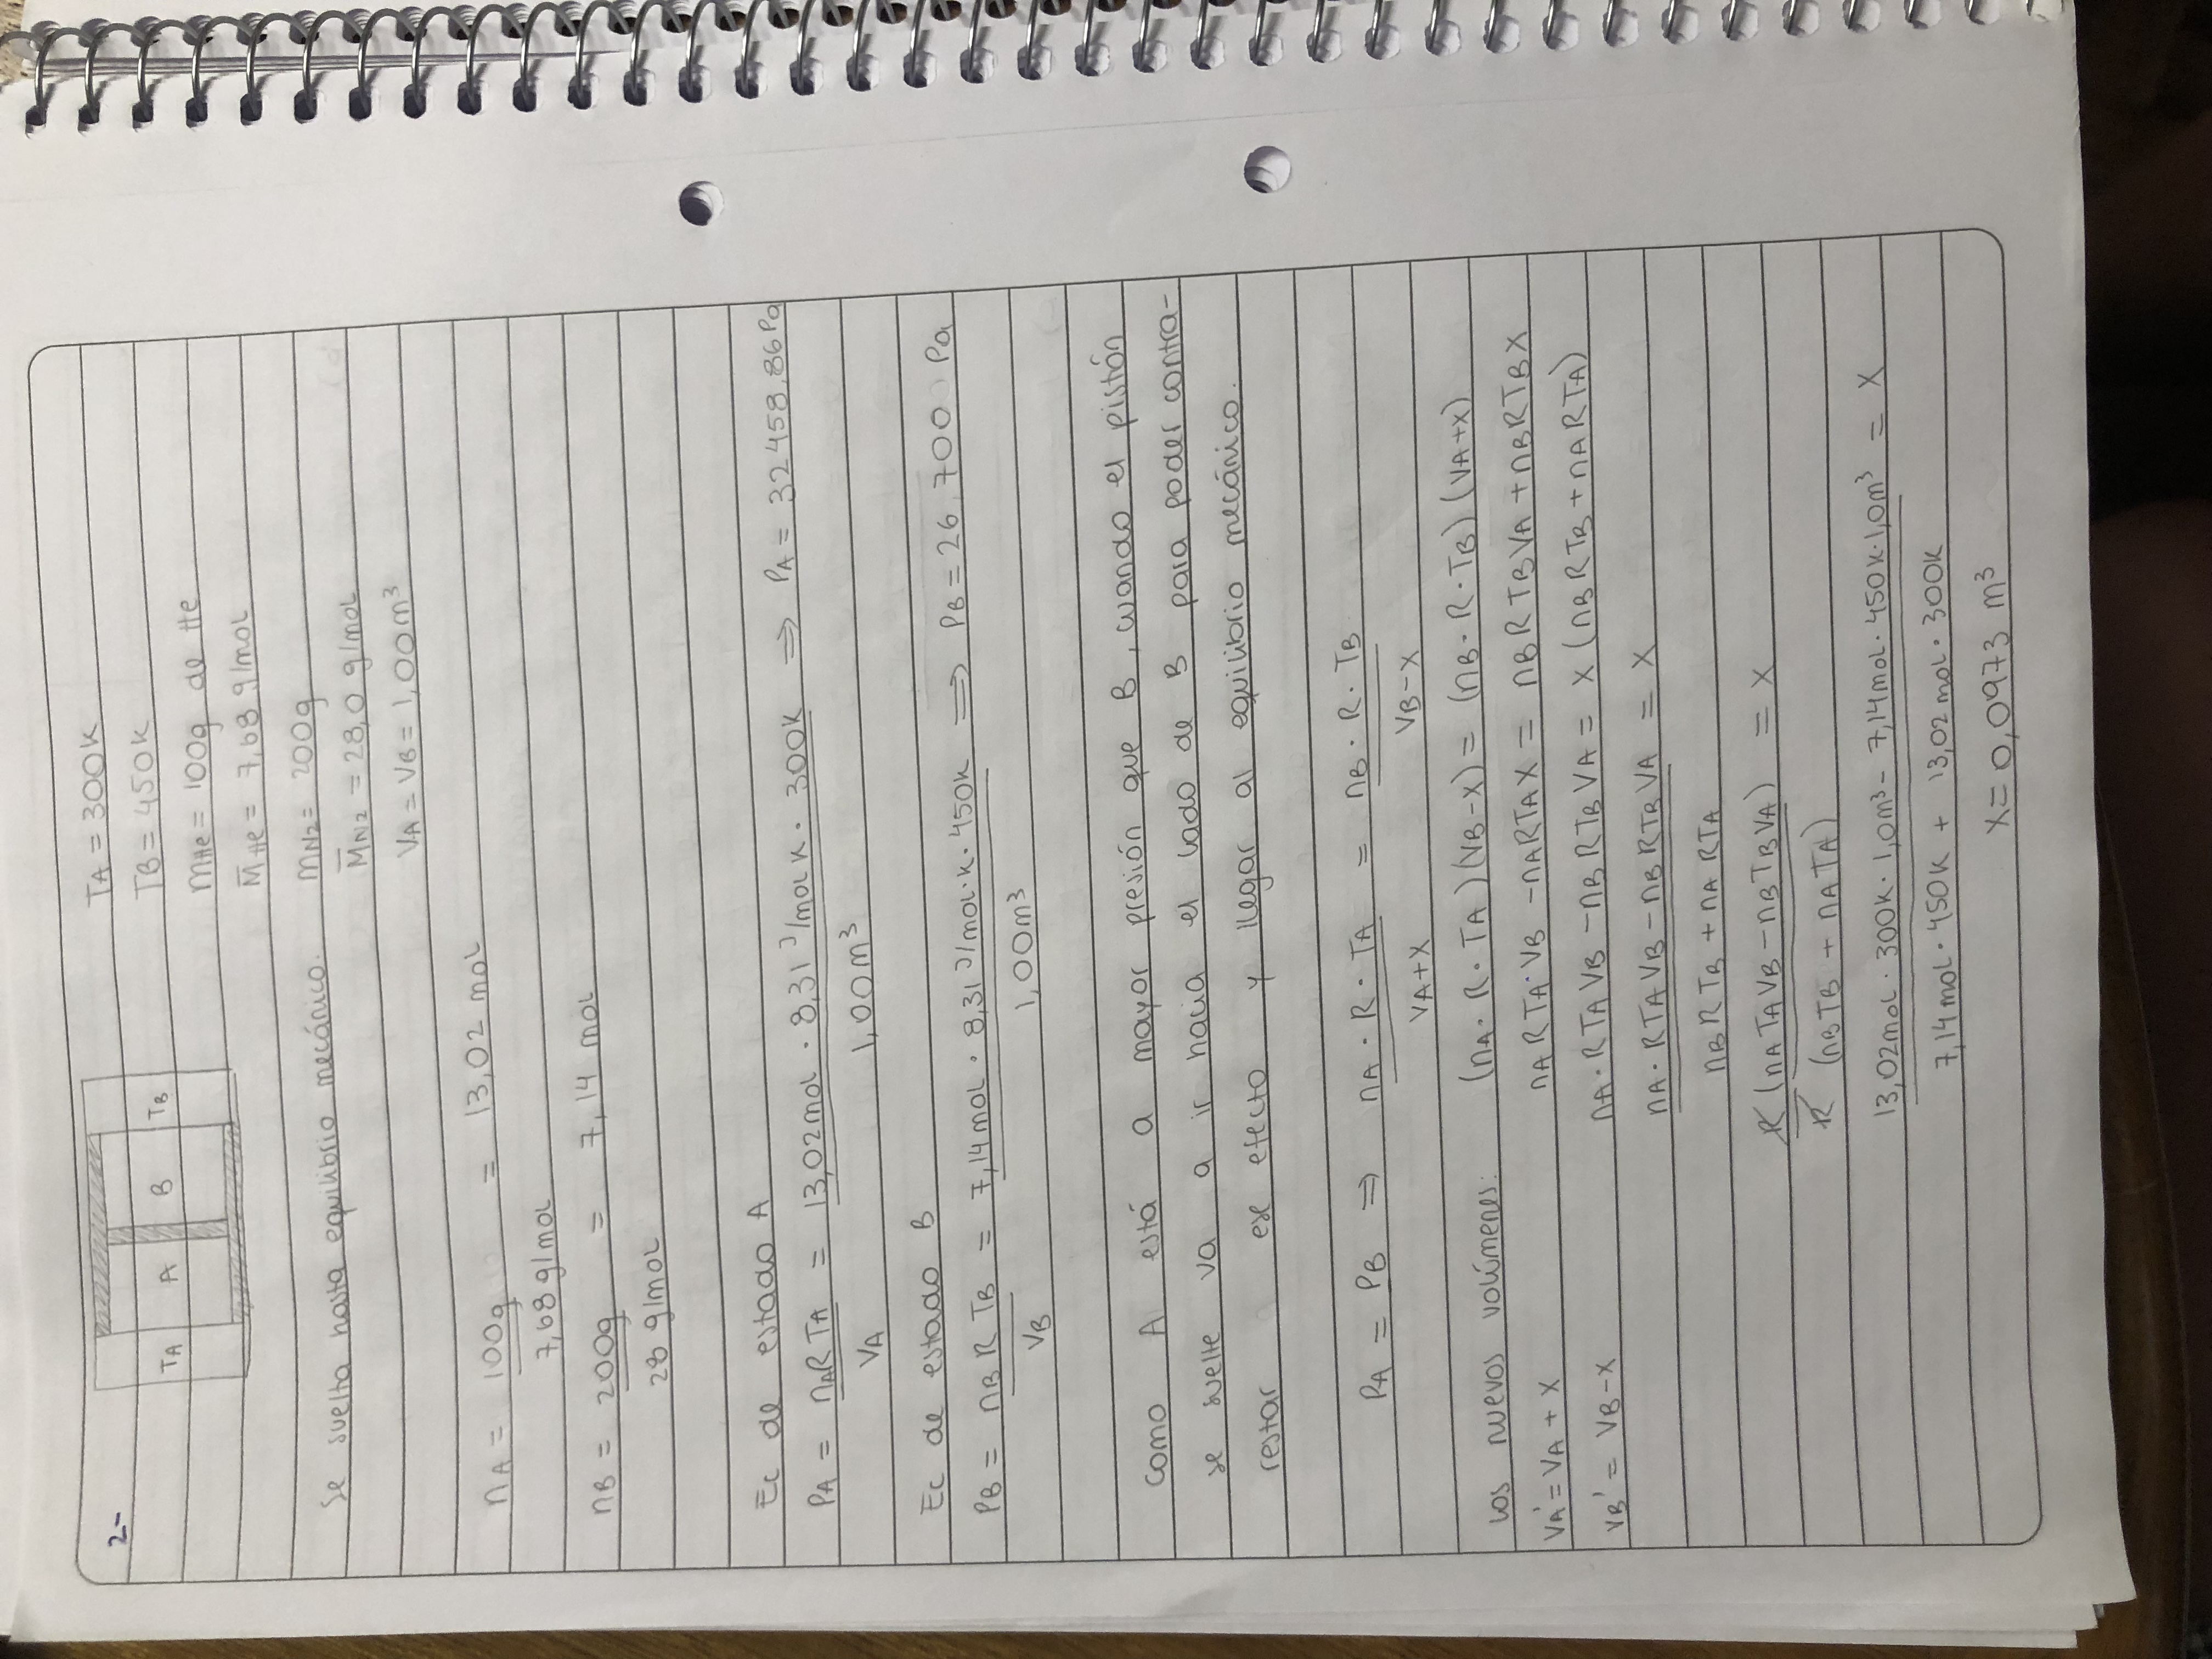 2-
TA A B TB
TA = 300K
TB = 450K
mHe = 100g de He
M̅He = 7,68 g/mol
Se suelta hasta equilibrio mecánico.
mN2 = 200g
M̅N2 = 28,0 g/mol
VA = VB = 1,00m³
nA = 100g / 7,68 g/mol = 13,02 mol
nB = 200g / 28 g/mol = 7,14 mol
Ec de estado A
PA = nARTA / VA = 13,02mol · 8,31 J/mol K · 300K / 1,00m³ ⇒ PA = 32458,86Pa
Ec de estado B
PB = nB R TB / VB = 7,14mol · 8,31 J/mol·K · 450K / 1,00m³ ⇒ PB = 26 700 Pa
Como A está a mayor presión que B, cuando el pistón
se suelte va a ir hacia el lado de B para poder contra-
restar ese efecto y llegar al equilibrio mecánico.
PA = PB ⇒ nA · R · TA / VA+X = nB · R · TB / VB-X
Los nuevos volúmenes: (nA · R · TA)(VB-X) = (nB · R · TB)(VA+X)
VA' = VA + X nARTA·VB - nARTAX = nBRTBVA + nBRTBX
VB' = VB-X nA·RTAVB - nBRTBVA = X (nBRTB + nARTA)
nA·RTAVB - nBRTBVA / nBRTB + nARTA = X
R (nATAVB - nBTBVA) / R (nBTB + nATA) = X
13,02mol · 300K · 1,0m³ - 7,14mol · 450K·1,0m³ / 7,14mol·450K + 13,02mol·300K = X
X = 0,0973 m³